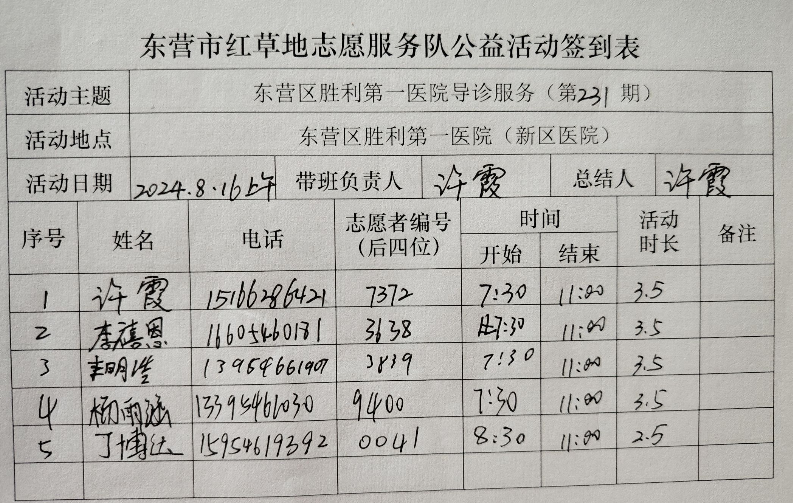 东营市红草地志愿服务队公益活动签到表
活动主题 东营区胜利第一医院导诊服务（第231期）
活动地点 东营区胜利第一医院（新区医院）
活动日期 2024.8.16上午 带班负责人 许霞 总结人 许霞
序号 姓名 电话 志愿者编号（后四位） 时间 开始 结束 活动时长 备注
1 许霞 15166286421 7372 7:30 11:00 3.5
2 李禧恩 16605460181 3638 7:30 11:00 3.5
3 13954661907 3839 7:30 11:00 3.5
4 杨雨涵 13395461030 9400 7:30 11:00 3.5
5 丁博达 15954619392 0041 8:30 11:00 2.5